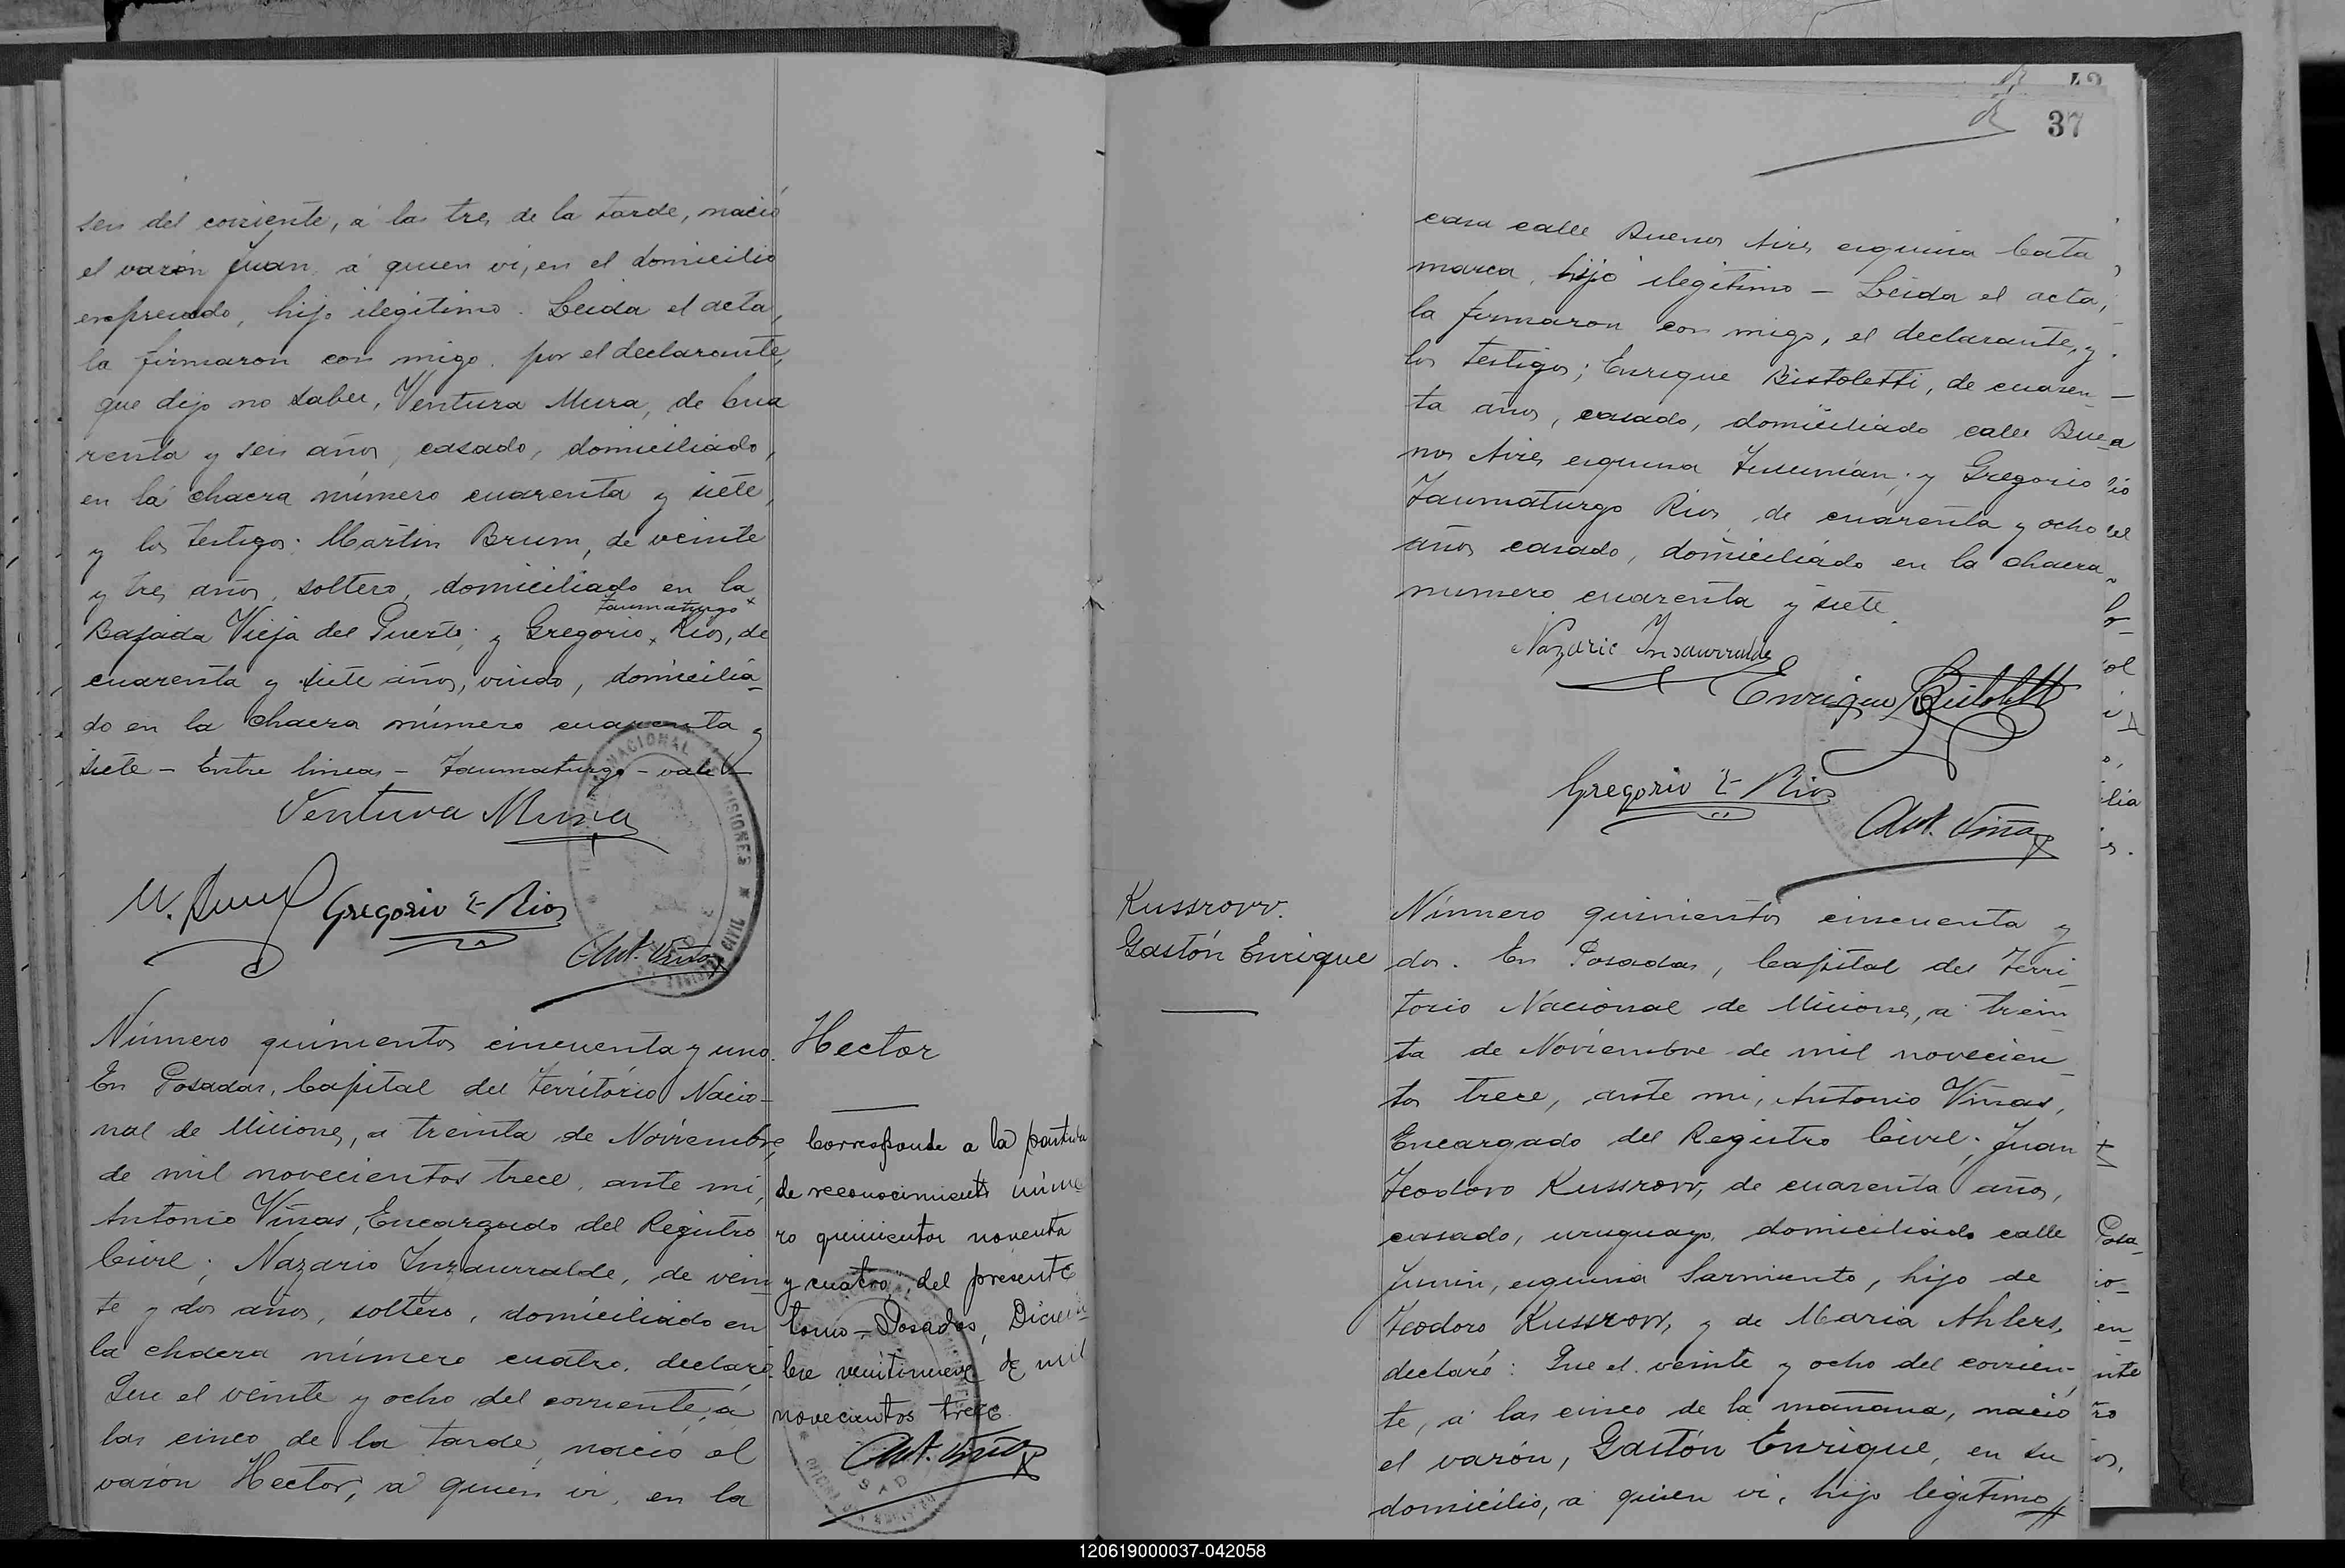 seis del corriente, á las tres de la tarde, nació
el varón Juan, á quien ví, en el domicilio
expresado, hijo ilegítimo. Leida el acta,
la firmaron con migo, por el declarante,
que dijo no saber, Ventura Mura, de cua
renta y seis años, casado, domiciliado,
en la chacra número cuarenta y siete,
y los testigos: Martin Brum, de veinte
y tres años, soltero, domiciliado en la
Taumaturgo
Bajada Vieja del Puerto; y Gregorio x Rios, de
cuarenta y siete años, viudo, domicilia-
do en la chacra número cuarenta y
siete - Entre lineas - Taumaturgo - vale
Ventura Mura
Gregorio T Rios
Ant. Viñas
REGISTRO CIVIL
MISIONES
Número quinientos cincuenta y uno.
En Posadas, Capital del Território Nacio-
nal de Misiones, a treinta de Noviembre
de mil novecientos trece, ante mi,
Antonio Viñas, Encargado del Registro
Civil; Nazario Inzaurralde, de vein
te y dos años, soltero, domiciliado en
la chacra número cuatro, declaró:
Que el veinte y ocho del corriente, á
las cinco de la tarde, nació el
varón Hector, a quien ví, en la
Hector
Corresponde a la partida
de reconocimiento núme
ro quinientos noventa
y cuatro, del presente
tomo - Posadas, Diciem
bre veintinueve de mil
novecientos trece
Ant. Viñas
37
casa calle Buenos Aires esquina Cata
marca, hijo ilegítimo - Leida el acta,
la firmaron con migo, el declarante, y
los testigos; Enrique Bistoletti, de cuaren-
ta años, casado, domiciliado calle Bue
nos Aires esquina Tucumán; y Gregorio
Taumaturgo Rios, de cuarenta y ocho
años casado, domiciliado en la chacra
numero cuarenta y siete.
Nazario Insaurralde
Enrique Bistoletti
Gregorio T Rios
Ant. Viñas
Kussrow.
Gastón Enrique
Número quinientos cincuenta y
dos. En Posadas, Capital del Terri-
torio Nacional de Misiones, a trein-
ta de Noviembre de mil novecien-
tos trece, ante mi, Antonio Viñas,
Encargado del Registro Civil; Juan
Teodoro Kussrow, de cuarenta años,
casado, uruguayo, domiciliado calle
Junin, esquina Sarmiento, hijo de
Teodoro Kussrow, y de Maria Ahlers,
declaró: Que el veinte y ocho del corrien-
te, á las cinco de la mañana, nació
el varón, Gastón Enrique, en su
domicilio, a quien ví, hijo legítimo
120619000037-042058